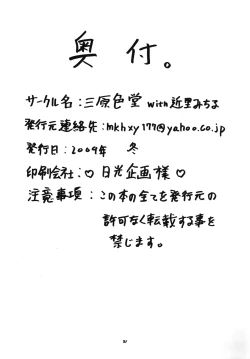 奥付。
サークル名:三原色堂with近里みちよ
発行元連絡先:mkhxy177@yahoo.co.jp
発行日:2009年 冬
印刷会社:♡日光企画様♡
注意事項:この本の全てを発行元の
許可なく転載する事を
禁じます。